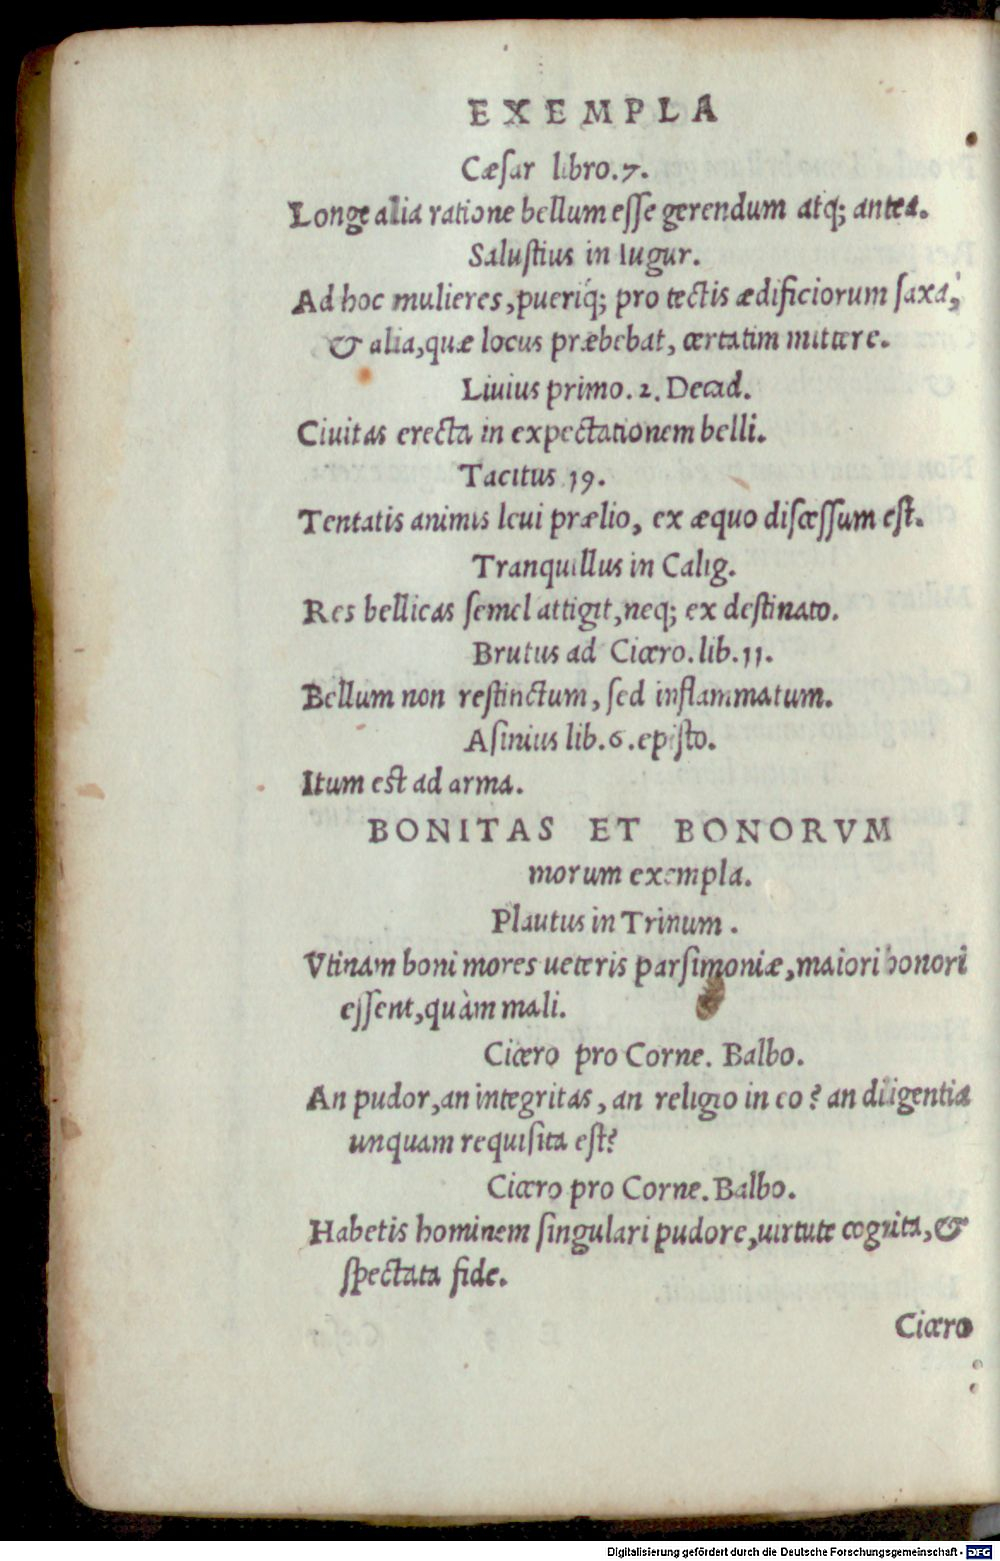 EXEMPLA
Cæſar libro.7.
Longe alia ratione bellum eſſe gerendum atq; antea.
Saluſtius in Iugur.
Ad hoc mulieres, pueriq́; pro tectis ædificiorum ſaxa,
& alia, quæ locus præbebat, certatim mittere.
Liuius primo. 2. Decad.
Ciuitas erecta in expectationem belli.
Tacitus 19.
Tentatis animis leui prælio, ex æquo diſceſſum eſt.
Tranquillus in Calig.
Res bellicas ſemel attigit, neq; ex deſtinato.
Brutus ad Cicero. lib.11.
Bellum non reſtinctum, ſed inflammatum.
Aſinius lib.6.epiſto.
Itum eſt ad arma.
BONITAS ET BONORVM
morum exempla.
Plautus in Trinum.
Vtinam boni mores ueteris parſimoniæ, maiori honori
eſſent, quàm mali.
Cicero pro Corne. Balbo.
An pudor, an integritas, an religio in eo? an diligentia
unquam requiſita eſt?
Cicero pro Corne. Balbo.
Habetis hominem ſingulari pudore, uirtute cognita, &
ſpectata fide.
Cicero
Digitalisierung gefördert durch die Deutsche Forschungsgemeinschaft - DFG